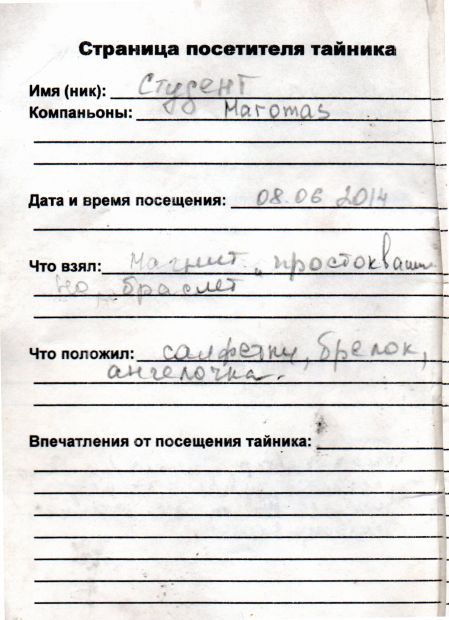 Страница посетителя тайника
Имя (ник): Студент
Компаньоны: Maromas
Дата и время посещения: 08.06 2014
Что взял: Магнит "простокваши
но, браслет
Что положил: салфетки, брелок,
ангелочка.
Впечатления от посещения тайника: